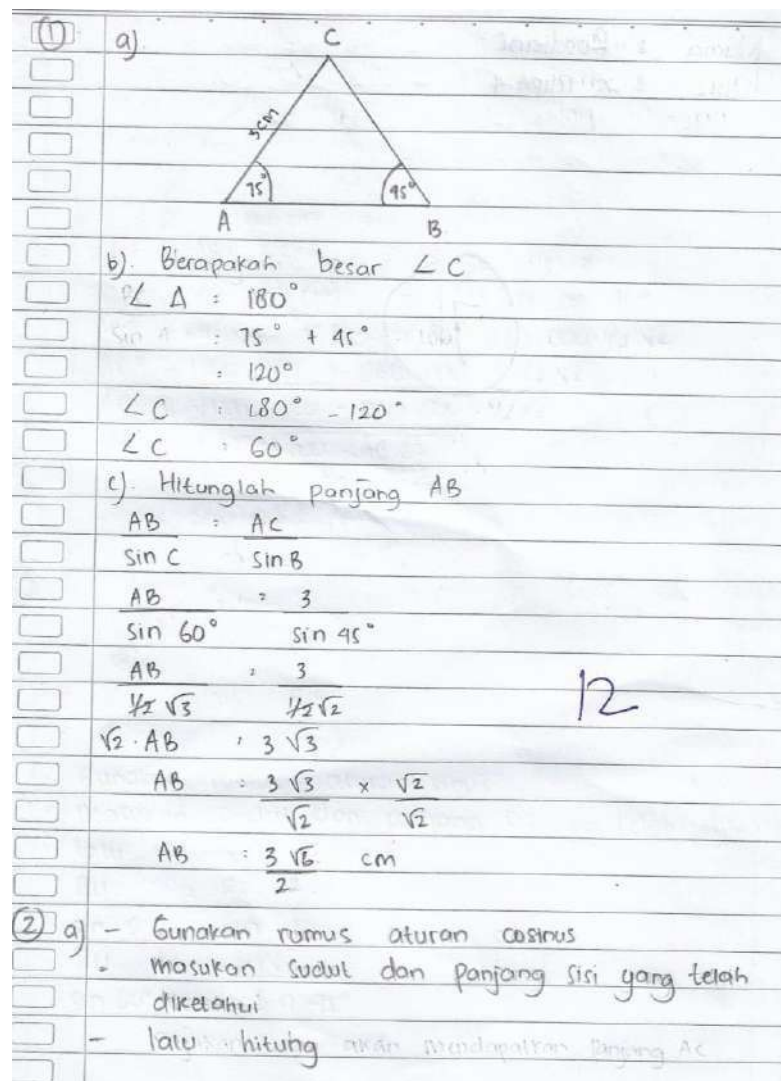 ① a) C
3cm
75° 45°
A B
b). Berapakah besar ∠ C
∠ A = 180°
= 75° + 45°
= 120°
∠ C = 180° - 120°
∠ C = 60°
c). Hitunglah panjang AB
AB/sin C = AC/sin B
AB/sin 60° = 3/sin 45°
AB/½√3 = 3/½√2
12
√2 . AB = 3√3
AB = 3√3/√2 × √2/√2
AB = 3√6/2 cm
② a) - Gunakan rumus aturan cosinus
- masukan sudut dan panjang sisi yang telah
diketahui
- lalu hitung akan mendapatkan panjang AC